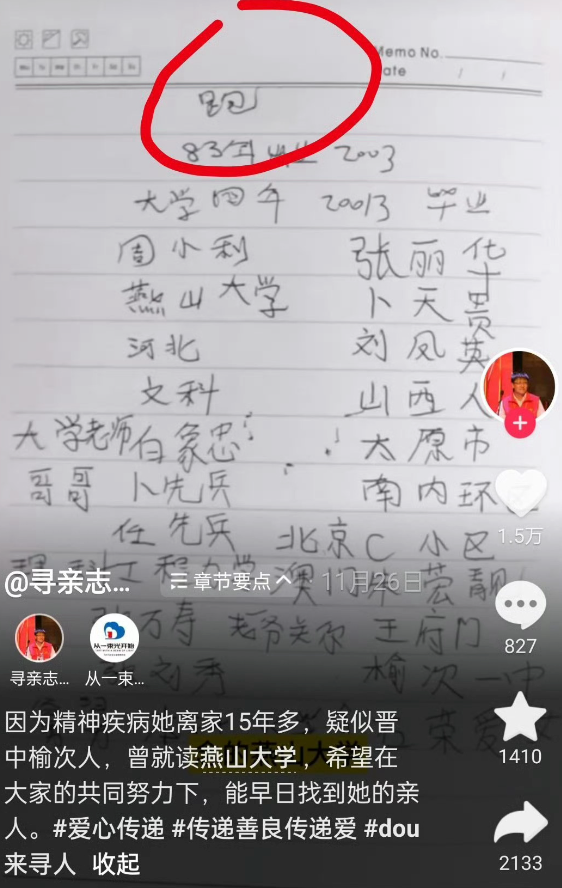 Memo No.
ate / /
跑
83年出生 2003
大学四年 20013 毕业
周小利 张丽华
燕山大学 卜天贵
河北 刘凤英
文科 山西人
大学老师白象忠 太原市
哥哥 卜先兵 南内环
任先兵 北京C小区
@寻亲志... 章节要点 · 11月26日
澳门 莹靓
万寿 老爷关尔 王府门
刘秀 榆次一中
荣爱
1.5万
827
寻亲志... 从一束...
因为精神疾病她离家15年多，疑似晋
中榆次人，曾就读燕山大学，希望在
大家的共同努力下，能早日找到她的亲
人。#爱心传递 #传递善良传递爱 #dou
来寻人 收起
1410
2133